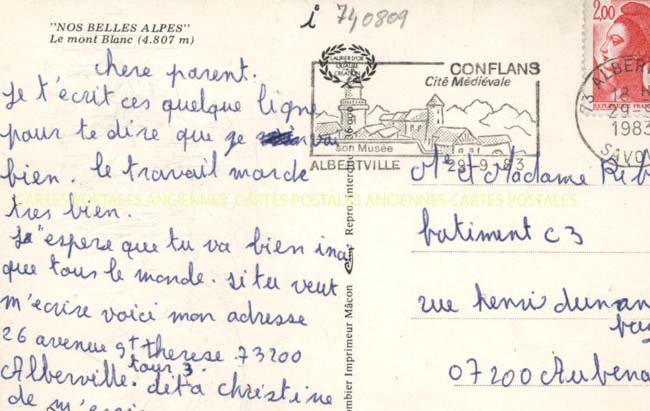 "NOS BELLES ALPES"
Le mont Blanc (4.807 m)
i 740809
chere parent.
Je t'écrit ces quelque ligne
pour te dire que je vai
bien. le travail marche
tres bien.
J'espere que tu va bien insi
que tous le monde. si tu veut
m'ecrire voici mon adresse
26 avenue st therese 73200
Alberville. tour 3. dita christine
de m'ecrire
LAURIER D'OR
QUALITE
CREATION
CONFLANS
Cité Médiévale
son Musée
ALBERTVILLE 29-9.83
2,00
REPUBLIQUE FRANCAISE
73 ALBERT
18 H
29-9
1983
SAVOIE
CARTES POSTALES ANCIENNES CARTES POSTALES ANCIENNES CARTES POSTALES
Mr et Madame Rib
batiment c3
rue henri dunan
07200 Aubena
ombier Imprimeur Mâcon Repro. interdite